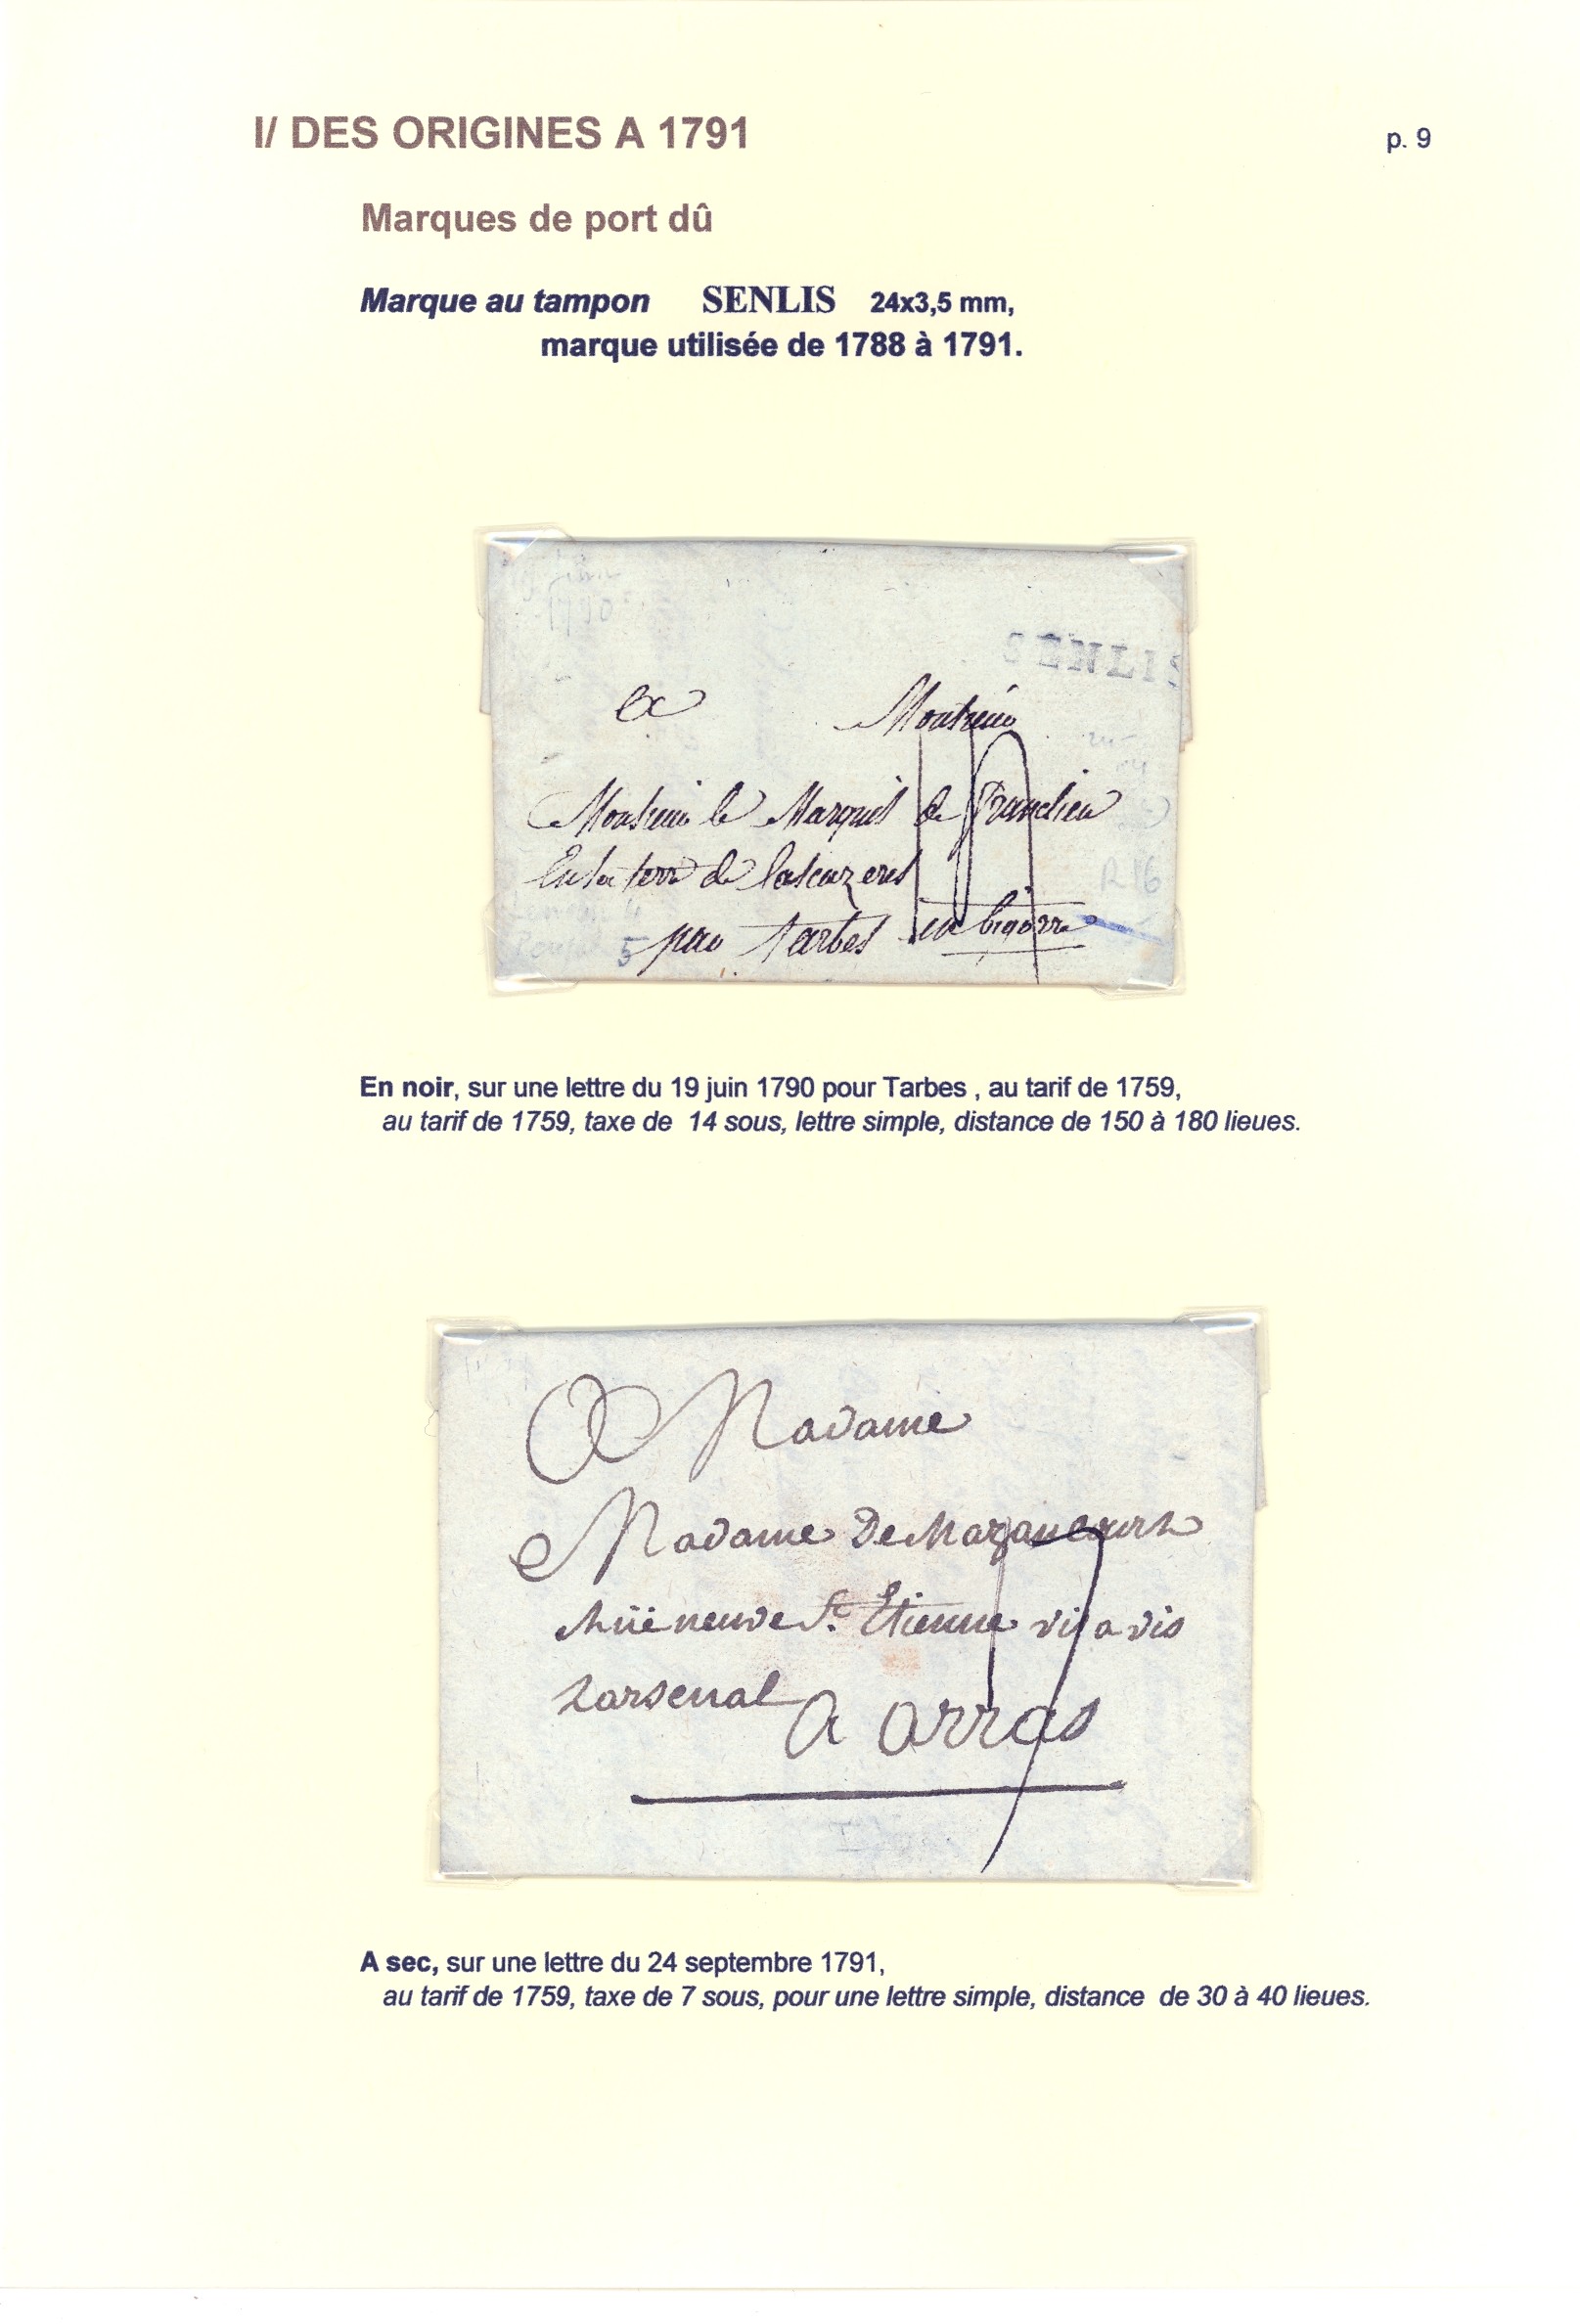 I/ DES ORIGINES A 1791
p. 9
Marques de port dû
Marque au tampon SENLIS 24x3,5 mm,
marque utilisée de 1788 à 1791.
1790
SENLIS
A Monsieur
Monsieur le Marquis de Franclieu
En sa terre de Lascazeres
R 16
5 par Tarbes en bigorre
14
En noir, sur une lettre du 19 juin 1790 pour Tarbes , au tarif de 1759,
au tarif de 1759, taxe de 14 sous, lettre simple, distance de 150 à 180 lieues.
A Madame
Madame De Mazancourt
Rüe neuve St. Etienne vis a vis
Larsenal
A arras
17
A sec, sur une lettre du 24 septembre 1791,
au tarif de 1759, taxe de 7 sous, pour une lettre simple, distance de 30 à 40 lieues.